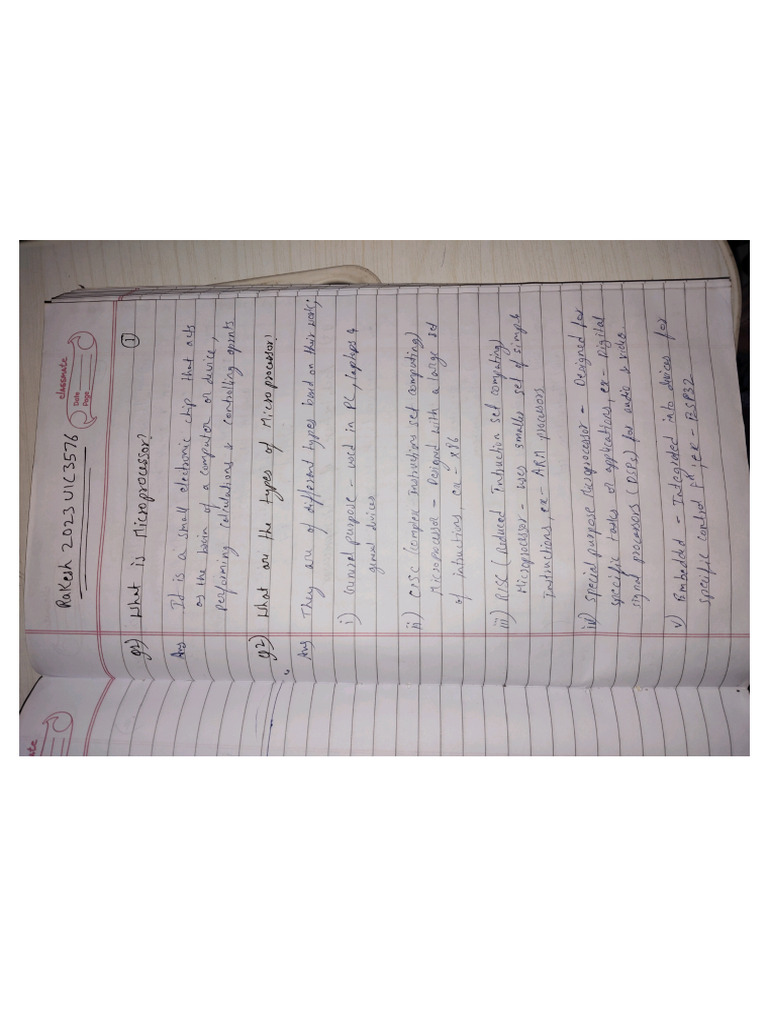 Rakesh 2023UIC3576
classmate
Date
Page
1
Q1) What is Microprocessor?
Ans It is a small electronic chip that acts
as the brain of a computer or device,
performing calculations & controlling oprents
Q2) What are the types of Microprocessor?
Ans They are of different types based on their work;
i) General purpose - used in PC, laptops &
general divices
ii) CISC (complex Instructions set computing)
Microprocessor - Designed with a large set
of intructions, ex - x86
iii) RISC (Reduced Intruction set computing)
Microprocessor - uses smaller set of simple
Instructions, ex - ARM processors
iv) special purpose Microprocessor - Designed for
specific tasks or applications, ex - Digital
signal processors (DSPs) for audio & video
v) Embedded - Integrated into divices for
specific control fx, ex -